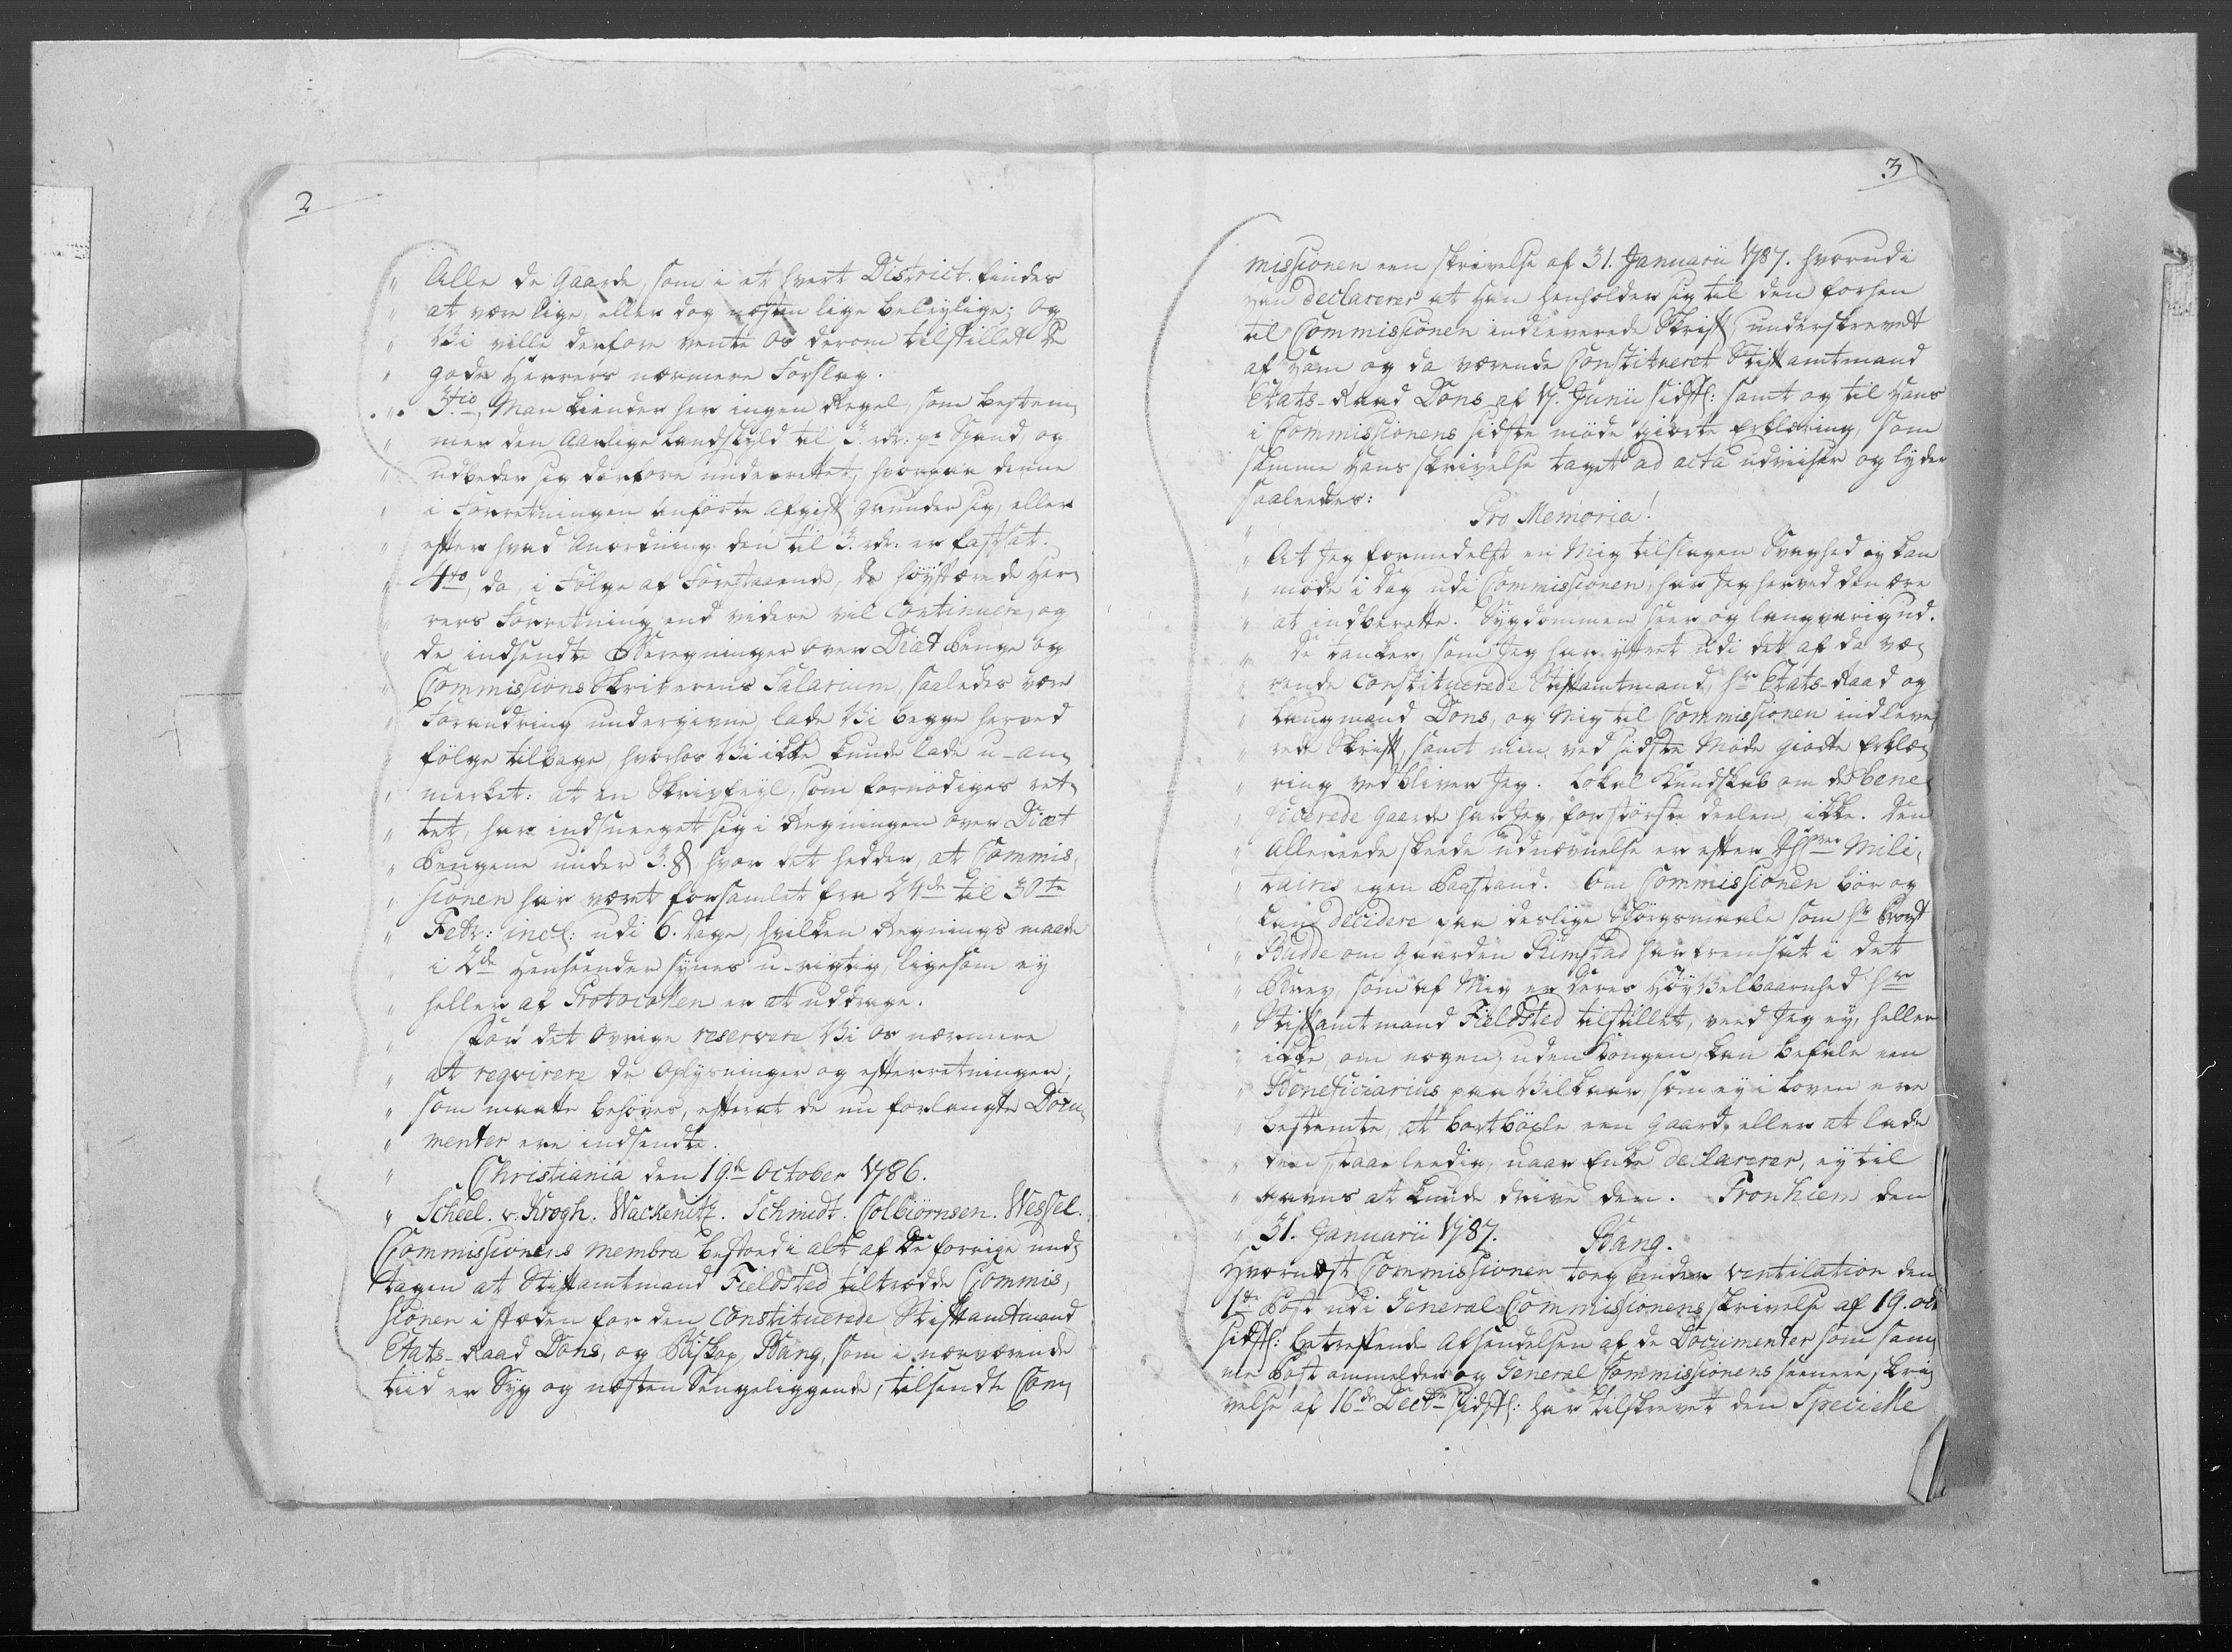 2
" Alle de Gaarde, som i et hvert District findes
" at være lige, eller dog næsten lige beleylige; og
" Vi ville derfore vente os derom tilstillet De
" gode Herrers nærmere Forslag.
" 3tio, Man kiender her ingen Regel, som bestem¬
" mer den Aarlige Landskyld til 3. rdr: pr Spand, og
" udbeder sig derfore underrettet, hvorpaa denne
" i Forretningen anførte Afgift grunder sig, eller
" efter hvad Anordning den til 3. rdr. er fastsat.
" 4to, da, i Følge af Forestaaende, De høystærede Her¬
" rers Forretning end videre vil Continuere, og
" de indsendte Beregninger over Diæt Penge og
" Commissions Skriverens Salarium, saaledes være
" Forandring undergivne, lade Vi begge herved
" følge tilbage, hvorhos Vi ikke kunde lade u-an¬
" merket: at en Skrivfeyl, som fornødiges ret¬
" tet, har indsneeget sig i Regningen over Diæt
" Pengene under 3. §, hvor det hedder, at Commis¬
" sionen har været forsamlet fra 24de til 30te
" Febr: incl: udi 6. Dage, hvilken Regnings maade
" i 2de Henseender synes u-rigtig, ligesom ey
" heller af Protocollen er at uddrage.
" For det øvrige reservere Vi os nærmere
" at reqvirere de Oplysninger og efterretninger,
" som maatte behøves, efterat de nu forlangte Docu¬
" menter ere indsendte.
" Christiania den 19de October 1786.
" Scheel. v. Krogh. Wackenitz. Schmidt. Colbiørnsen. Wessel.
Commissionens membra bestoed i alt af De forrige und¬
tagen at Stiftamtmand Fieldsted tiltrædde Commis¬
sionen i stæden for den Constituerede Stiftamtmand
Etats-Raad Dons, og Biskop Bang, som i nærværende
tiid er Syg og næsten Sengeliggende, tilsendte Com¬
3
missionen een skrivelse af 31. Januarii 1787. hvorudi
Han declarerer at Han henholder sig til den forhen
til Commissionen indleverede Skrift underskrevet
af Ham og da værende Constitueret Stiftamtmand
Etats-Raad Dons af 17. Junii sidstl: samt og til Hans
i Commissionens sidste møde giorte Erklæring, som
samme Hans skrivelse taget ad acta udviiser og lyder
saaleedes:
Pro Memoria!
" At Jeg formedelst en Mig tilslagen Svaghed ey kan
" møde i Dag udi Commissionen, har Jeg herved den ære
" at indberette. Sygdommen seer og langvarig ud.
" De tanker, som Jeg har yttret udi det af da væ¬
" rende Constituerede Stiftamtmand, Hr Etats-Raad og
" Laugmand Dons, og Mig til Commissionen indleve¬
" rede Skrift, samt min, ved sidste Møde giorte Erklæ¬
" ring vedbliver Jeg. Lokal Kundskab om de bene¬
" ficerede Gaarde har Jeg, for største deelen, ikke. Den
" Allereede skeede udnævnelse er efter Mili¬
" taires egen Paastand. Om Commissionen bør og
" kan decidere paa deslige Spørgsmaale som Hr Provst
" Budde om Gaarden Rimstad har fremsat i det
" Brev, som af Mig er Deres HøyVelbaarnhed Hr
" Stiftamtmand Fieldsted tilstillet, veed Jeg ey, heller
" ikke, om nogen, uden Kongen, kan befale een
" Beneficiarius paa Vilkaar, som ey i Loven ere
" bestemte, at bortböxle een Gaard, eller at lade
" den staae leedig, naar Enke declarerer, ey til
" gavns at kunde drive den. Tronhiem den
" 31. Januarii 1787. Bang.
Hvornæst Commissionen toeg under Ventilation den
1te Post udi General Commissionens skrivelse af 19. oct
sidstl: betreffende Afsendelsen af de Documenter som sam¬
me Post ommelder og General Commissionens seenere skri¬
velse af 16de Decbr sidstl: har tilskrevet den Specielle